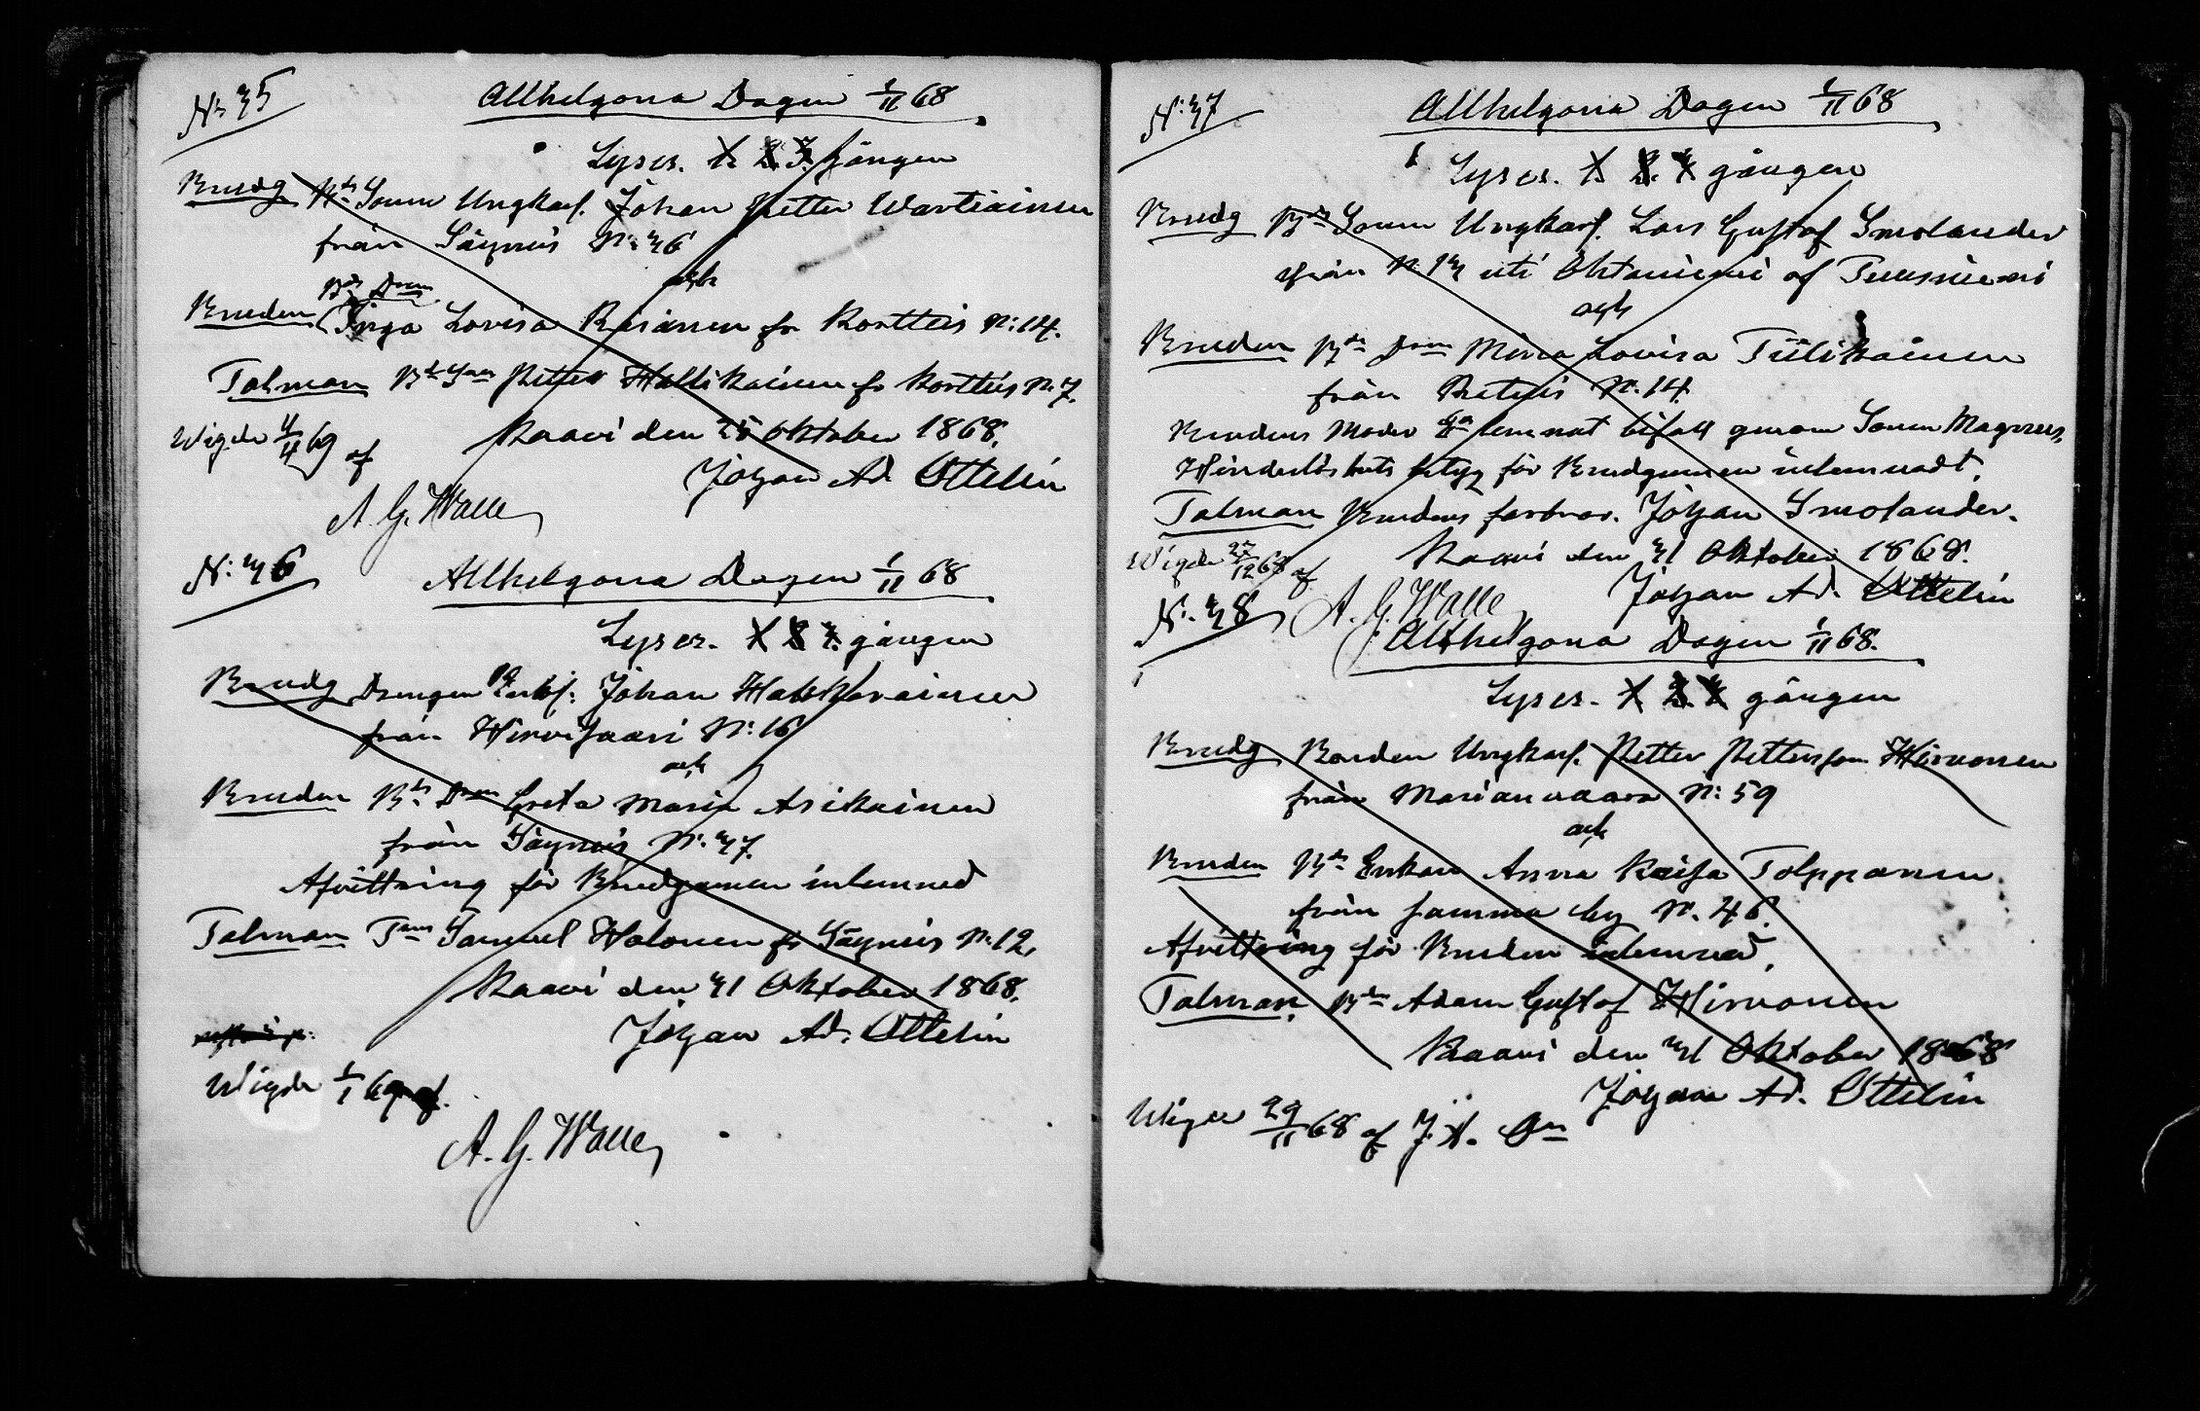 N: 35
Allhelgona Dagen 1/11 68
Lyses. 1. 2. 3. gången
Brudg Bds Sonen Ungkarl. Johan Petter Wartiainen
från Säyneis N: 36
och
Bds Dron
Bruden Inga Lovisa Räsänen fr Kortteis N: 14.
Talman Bde Son Petter Hallikainen fr Kortteis N. 7.
Kaavi den 25 Oktober 1868.
Wigde 4/4 69 af
Johan Ad. Ottelin
A. G. Walle
N: 36
Allhelgona Dagen 1/11 68
Lyses. 1 2 3. gången
Brudg Drengen Enkl: Johan Hakkarainen
från Hirvisaari N: 16
och
Bruden Bds Dron Greta Maria Asikainen
från Säyneis N. 37.
Afvittring för Brudgumen inlemnad
Talman Samuel Holonen fr Säyneis N: 12.
Kaavi den 31 Oktober 1868.
Johan Ad. Ottelin
Wigde 1/1 69 af.
A. G. Walle
N: 37
Allhelgona Dagen 1/11 68
Lyses. 1. 2. 3 gången
Brudg Bds Sonen Ungkarl. Lars Gustaf Smolander
från N. 13 uti Ohtaniemi af Tuusniemi
och
Bruden Bds Dron Maria Lovisa Tiilikainen
från Retuis N. 14.
Brudens Moder lemnat bifall genom Sonen Magnus.
Hinderlöshets betyg för Brudgumen inlemnadt.
Talman Brudens farbror. Johan Smolander.
Wigde 27/12 68 af
Kaavi den 31 Oktober 1868.
Johan Ad. Ottelin
A. G. Walle
N: 38
Allhelgona Dagen 1/11 68.
Lyses. 1 2. 3 gången
Brudg Bonden Ungkarl. Petter Pettersson Hirvonen
från Marianvaara N: 59
och
Bruden Bds Enkan Anna Kaisa Tolppanen
från samma by N. 46.
Afvittring för Bruden inlemnad.
Talman. Bdn Adam Gustaf Hirvonen
Kaavi den 31 Oktober 1868
Johan Ad. Ottelin
Wigde 29/11 68 af J. A. On